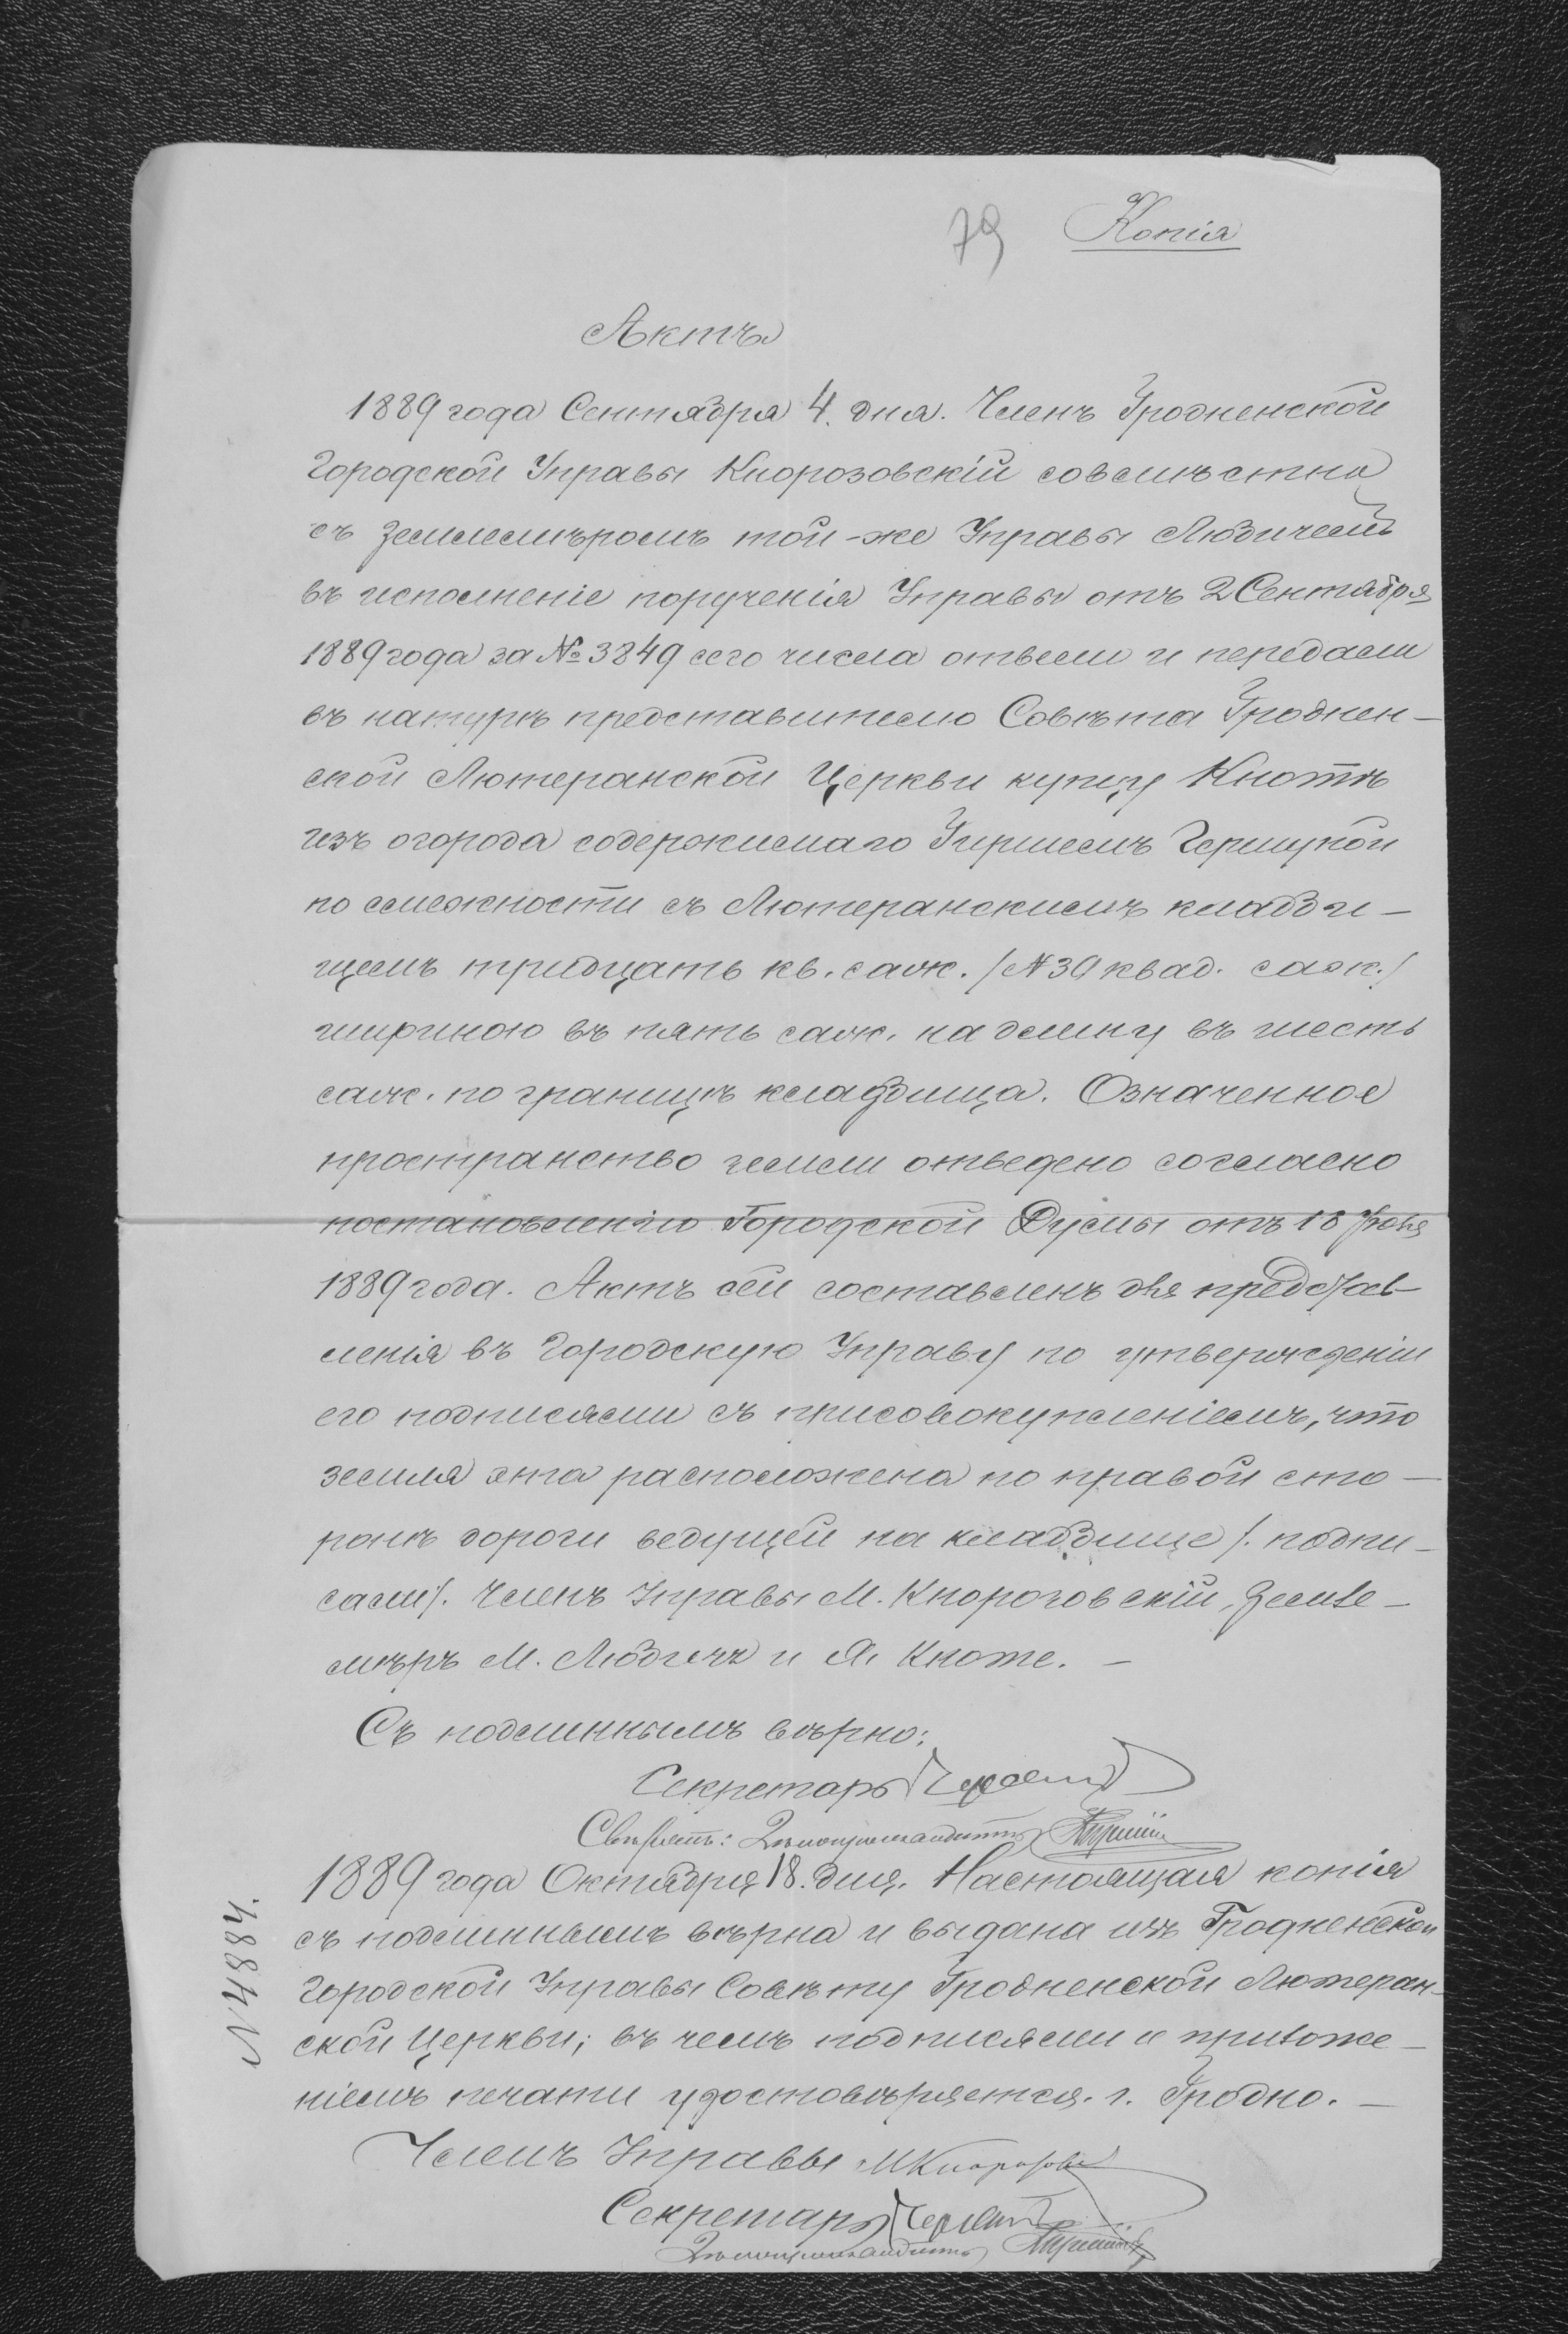 79 Копія
Актъ
1889 года Сентября 4. дня. Членъ Гродненской
Городской Управы Кнорозовскій совмѣстно
съ Землемѣромъ той-же Управы Любичемъ
въ исполненіе порученія Управы отъ 2 Сентября
1889 года за № 3849 сего числа отвели и передали
въ натурѣ представителю Совѣта Гроднен-
ской Лютеранской Церкви купцу Кноте
изъ огорода содержимаго Гиршемъ
по смежности съ Лютеранскимъ кладби-
щемъ тридцать кв. саж. /№ 30 квад. саж./
шириною въ пять саж. на длину въ шесть
саж. по границѣ кладбища. Означенное
пространство земли отведено согласно
постановленію Городской Думы отъ 18
1889 года. Актъ сей составленъ для представ-
ленія въ Городскую Управу по утвержденіи
его подписями съ присовокупленіемъ, что
земля эта расположена по правой сто-
ронѣ дороги ведущей на кладбище /. подпи-
сали/. Членъ Управы М. Кнорозовскій, Земле-
мѣръ М. Любичъ и Я. Кноте. -
Съ подлиннымъ вѣрно:
Секретарь
Свѣрялъ: Дѣлопроизводитель
1889 года Октября 18. дня. Настоящая копія
съ подлиннымъ вѣрна и выдана изъ Гродненской
Городской Управы Совѣту Гродненской Лютеран-
ской Церкви; въ чемъ подписями и приложе-
ніемъ печати удостовѣряется. г. Гродно. -
Членъ Управы МКнорозовскій
Секретарь
Дѣлопроизводитель
№ 4884.